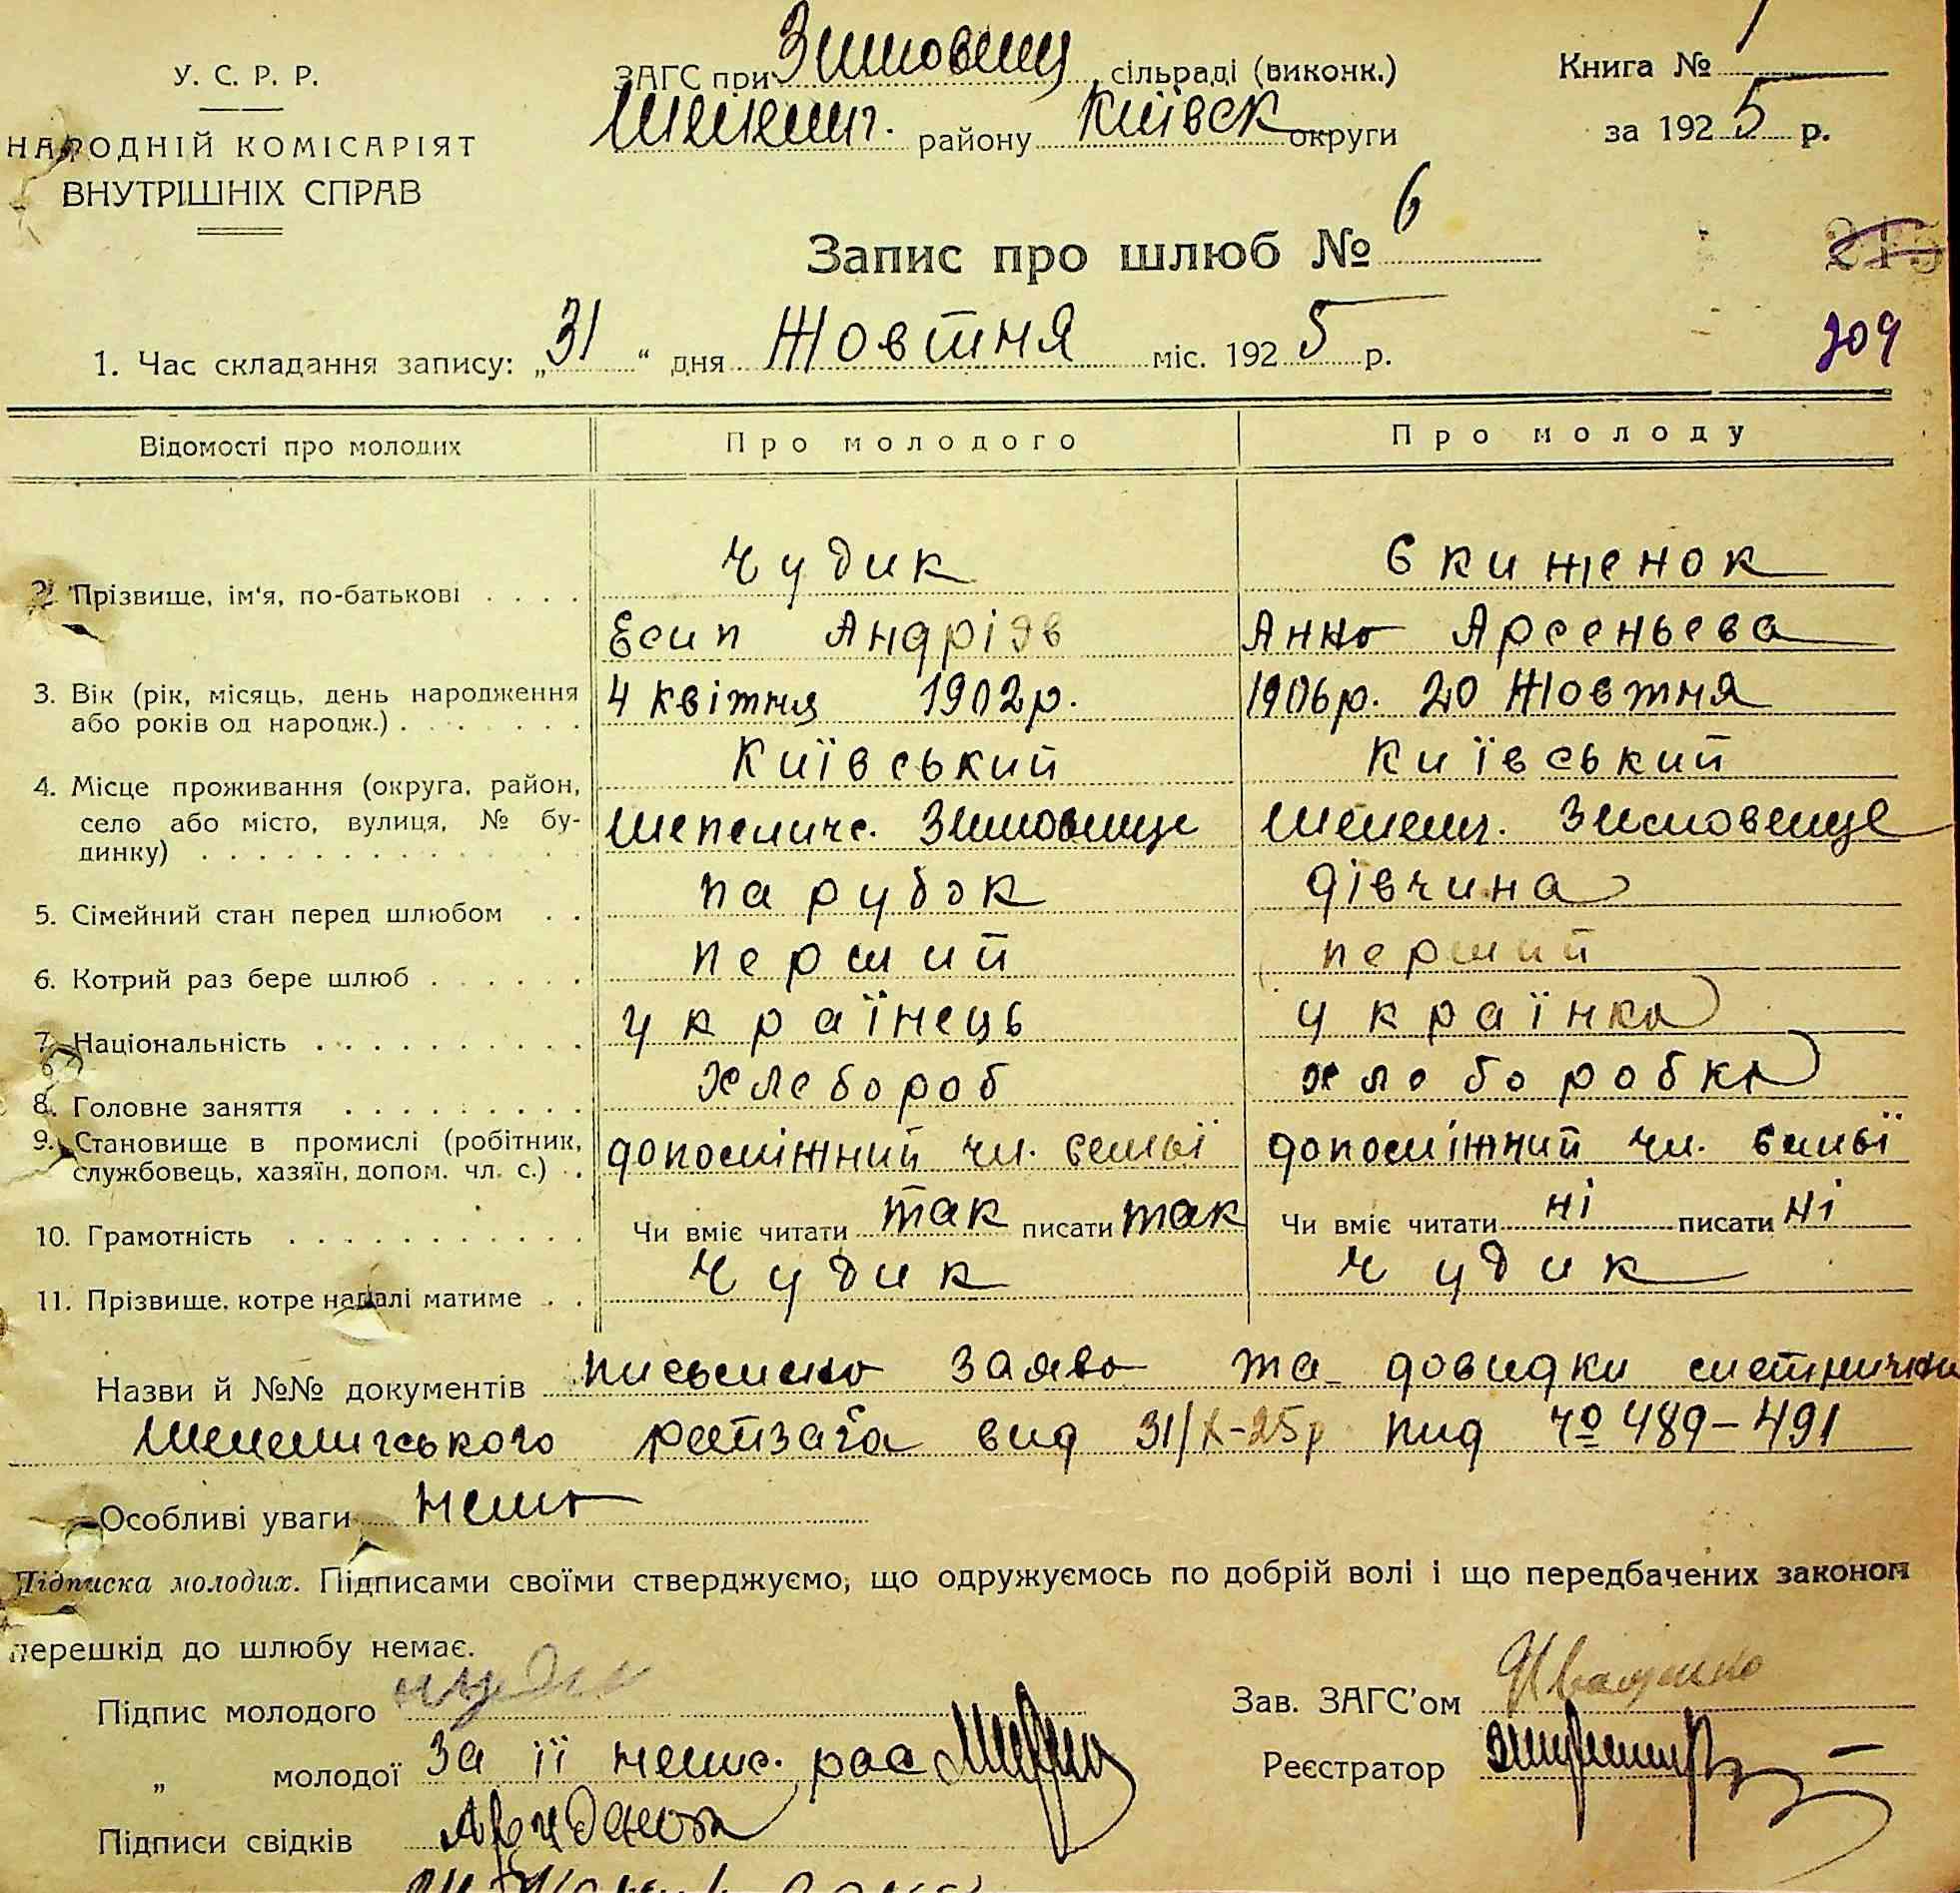 У. С. Р. Р.
НАРОДНІЙ КОМІСАРІЯТ
ВНУТРІШНІХ СПРАВ
ЗАГС при Зимовищ сільраді (виконк.)
Шепелич. району Київськ округи
Книга № 1
за 1925 р.
Запис про шлюб № 6
215
209
1. Час складання запису: „31“ дня Жовтня міс. 1925 р.
Відомості про молодих Про молодого Про молоду
2. Прізвище, ім'я, по-батькові . . . . Чудик Екименок
Есип Андріїв Анна Арсеньева
3. Вік (рік, місяць, день народження або років од народж.) . . . . . . . 4 квітня 1902р. 1906р. 20 Жовтня
4. Місце проживання (округа, район, село або місто, вулиця, № будинку) . . . . . . . Київський Київський
Шепеличс. Зимовище Шепелич. Зимовеще
5. Сімейний стан перед шлюбом . . парубок дівчина
6. Котрий раз бере шлюб . . . . . . перший перший
7. Національність . . . . . . . . . . українець українка
8. Головне заняття . . . . . . . . . хлебороб хлеборобка
9. Становище в промислі (робітник, службовець, хазяїн, допом. чл. с.) . . допоміжний чл. семьї допоміжний чл. семьї
10. Грамотність . . . . . . . . . . . Чи вміє читати так писати так Чи вміє читати ні писати ні
11. Прізвище, котре надалі матиме . . Чудик Чудик
Назви й №№ документів письмена заява та довидки
Шепеличського райзага вид 31/X-25р пид № 489–491
Особливі уваги нема
Підписка молодих. Підписами своїми стверджуємо, що одружуємось по добрій волі і що передбачених законом
перешкід до шлюбу немає.
Підпис молодого Чудик
„ молодої За її непис. рос
Підписи свідків
Зав. ЗАГС'ом
Реєстратор